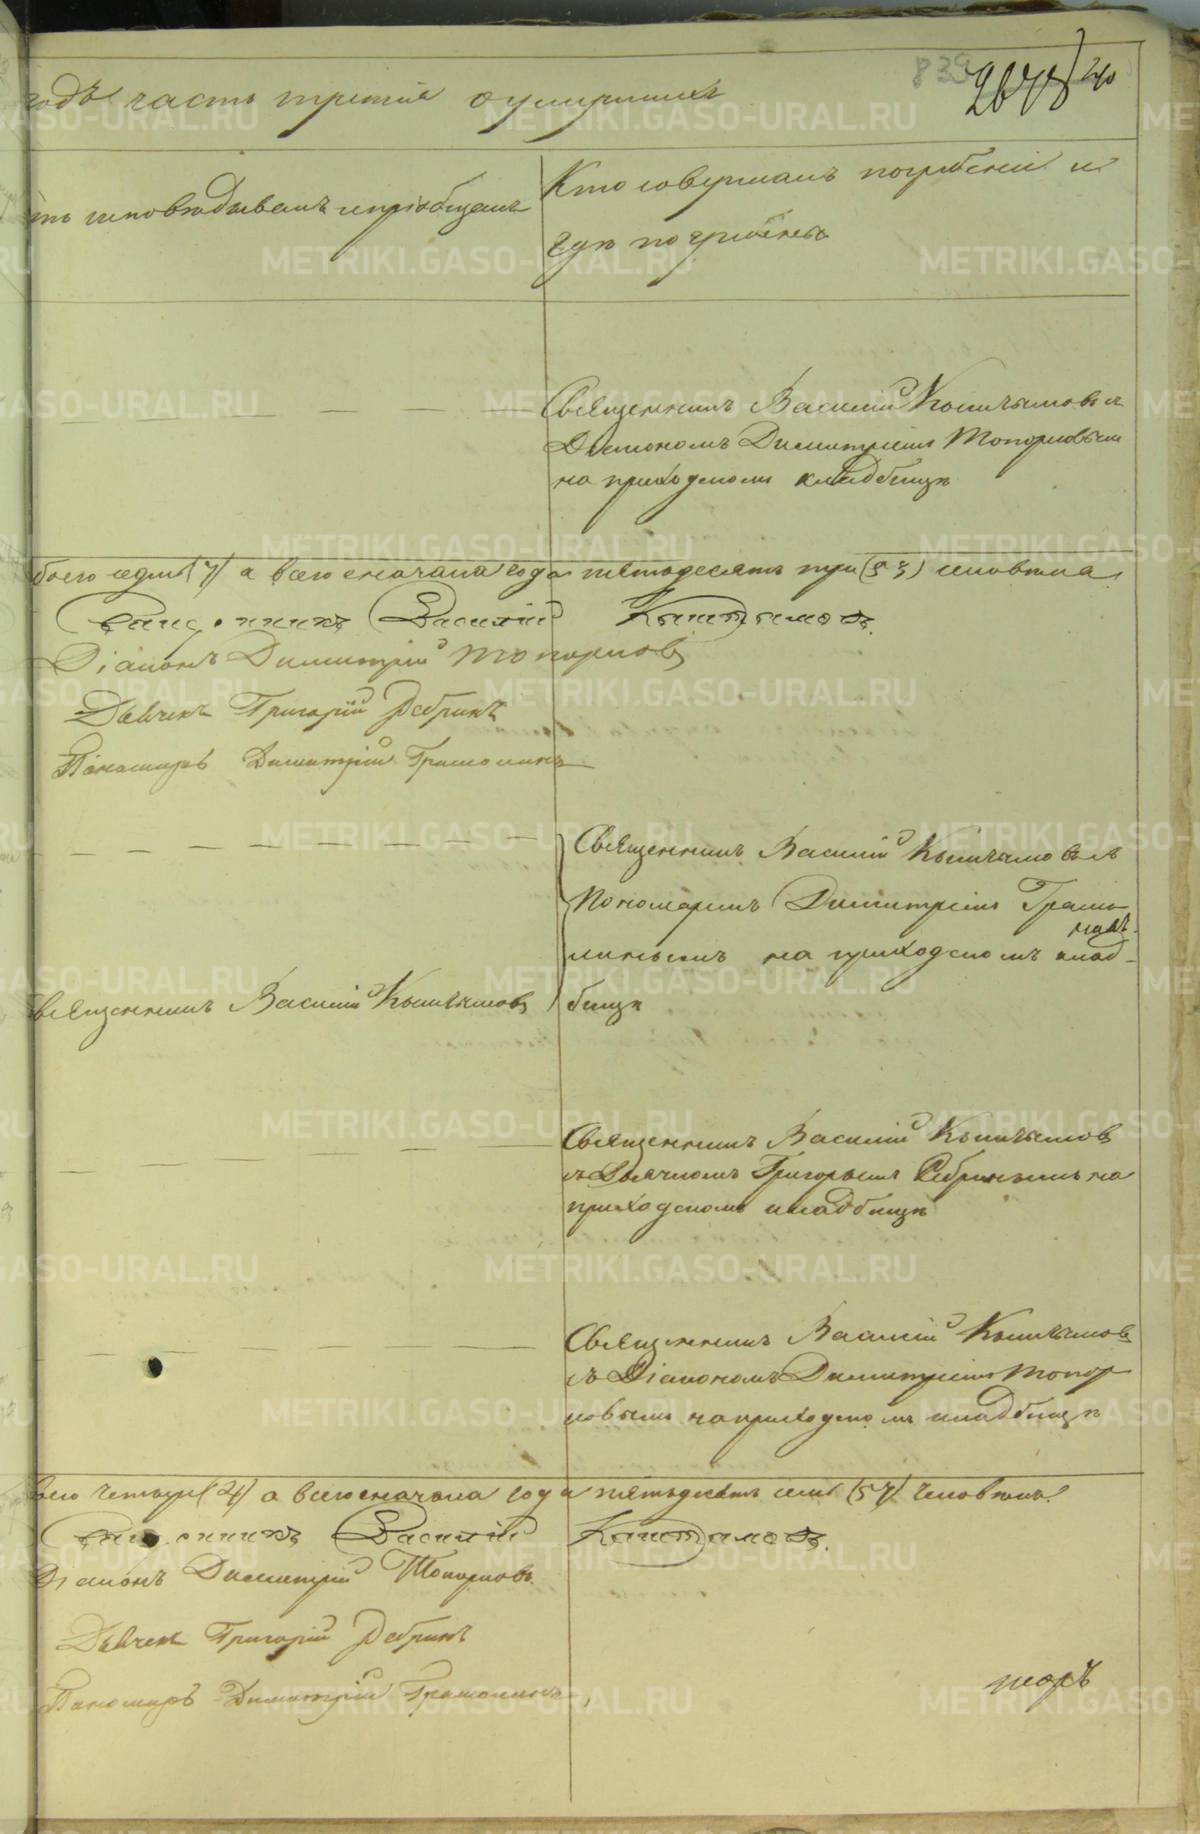 годъ часть третія о умершихъ
839
2678
240
кто исповѣдывалъ и пріобщалъ
Кто совершалъ погребеніе и
гдѣ погребены
Священникъ Василій Кыштымовъ съ
Діакономъ Димитріемъ Топорковымъ
на приходскомъ кладбищѣ
обоего седмь (7) а всего сначала года пятьдесятъ три (53) человѣка
Священникъ Василій Кыштымовъ.
Діаконъ Димитрій Топорковъ
Дьячекъ Григорій Ребринъ
Пономарь Димитрій Грамолинъ
Священникъ Василій Кыштымовъ съ
Пономаремъ Димитріемъ Грамо-
линымъ на приходскомъ клад-
бищѣ
Священникъ Василій Кыштымовъ
Священникъ Василій Кыштымовъ
съ Дьячкомъ Григорьемъ Ребринымъ на
приходскомъ кладбищѣ
Священникъ Василій Кыштымовъ
съ Діакономъ Димитріемъ Топор
ковымъ на приходскомъ кладбищѣ
всего четыре (4) а всего сначала года пятьдесятъ семь (57) человѣкъ.
Священникъ Василій Кыштымовъ.
Діаконъ Димитрій Топорковъ.
Дьячекъ Григорій Ребринъ
Пономарь Димитрій Грамолинъ
METRIKI.GASO-URAL.RU